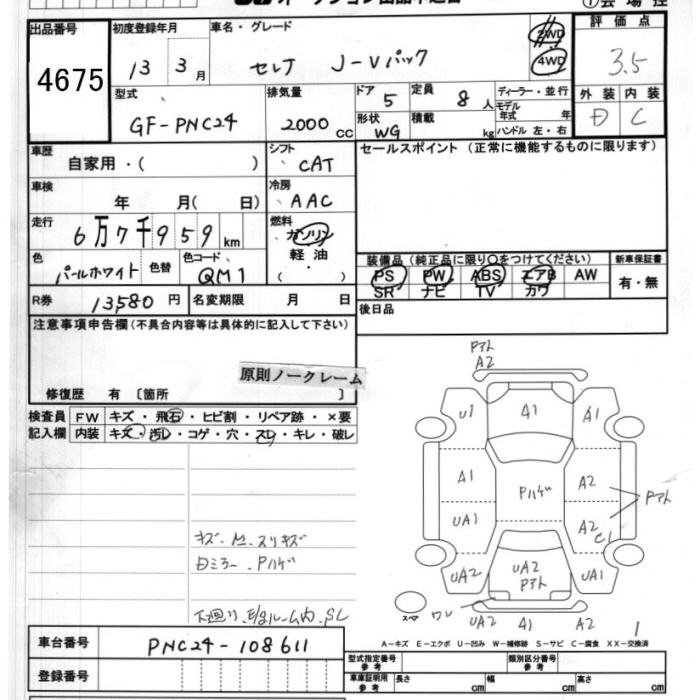 出品番号 初度登録年月 車名・グレード 評価点
4675 13 3月 セレナ J-Vパック 2WD 4WD 3.5
型式 排気量 ドア 5 定員 8人 ディーラー・並行 外装 内装
GF-PNC24 2000cc 形状 WG 積載 kg モデル年式 年 D C
ハンドル 左・右
車歴 自家用・( ) シフト CAT セールスポイント (正常に機能するものに限ります)
車検 年 月( 日) 冷房 AAC
走行 6万7千959km 燃料 ガソリン
軽油
・
( )
色 パールホワイト 色替 色コード QM1
装備品 (純正品に限り○をつけてください) 新車保証書
PS PW ABS エアB AW 有・無
SR ナビ TV カワ
R券 13580円 名変期限 月 日 後日品
注意事項申告欄(不具合内容等は具体的に記入して下さい)
原則ノークレーム
修復歴 有 〔箇所 〕
検査員 FW キズ・飛石・ヒビ割・リペア跡・×要
記入欄 内装 キズ・汚レ・コゲ・穴・スレ・キレ・破レ
Pアト
A2
U1 A1 A1
A1 Pハゲ A2 Pアト
UA1 A2 C1
UA2 UA2 Pアト UA1
スペア ワレ UA2 A1 A2
1
キズ.M.スリキズ
Dミラー.Pハゲ
下廻り.E/gルーム内.SC
A-キズ E-エクボ U-凹み W-補修跡 S-サビ C-腐食 XX-交換済
車台番号 PNC24-108611
登録番号
型式指定番号 参考 類別区分番号 参考
車庫証明用 参考 長さ cm 幅 cm 高さ cm